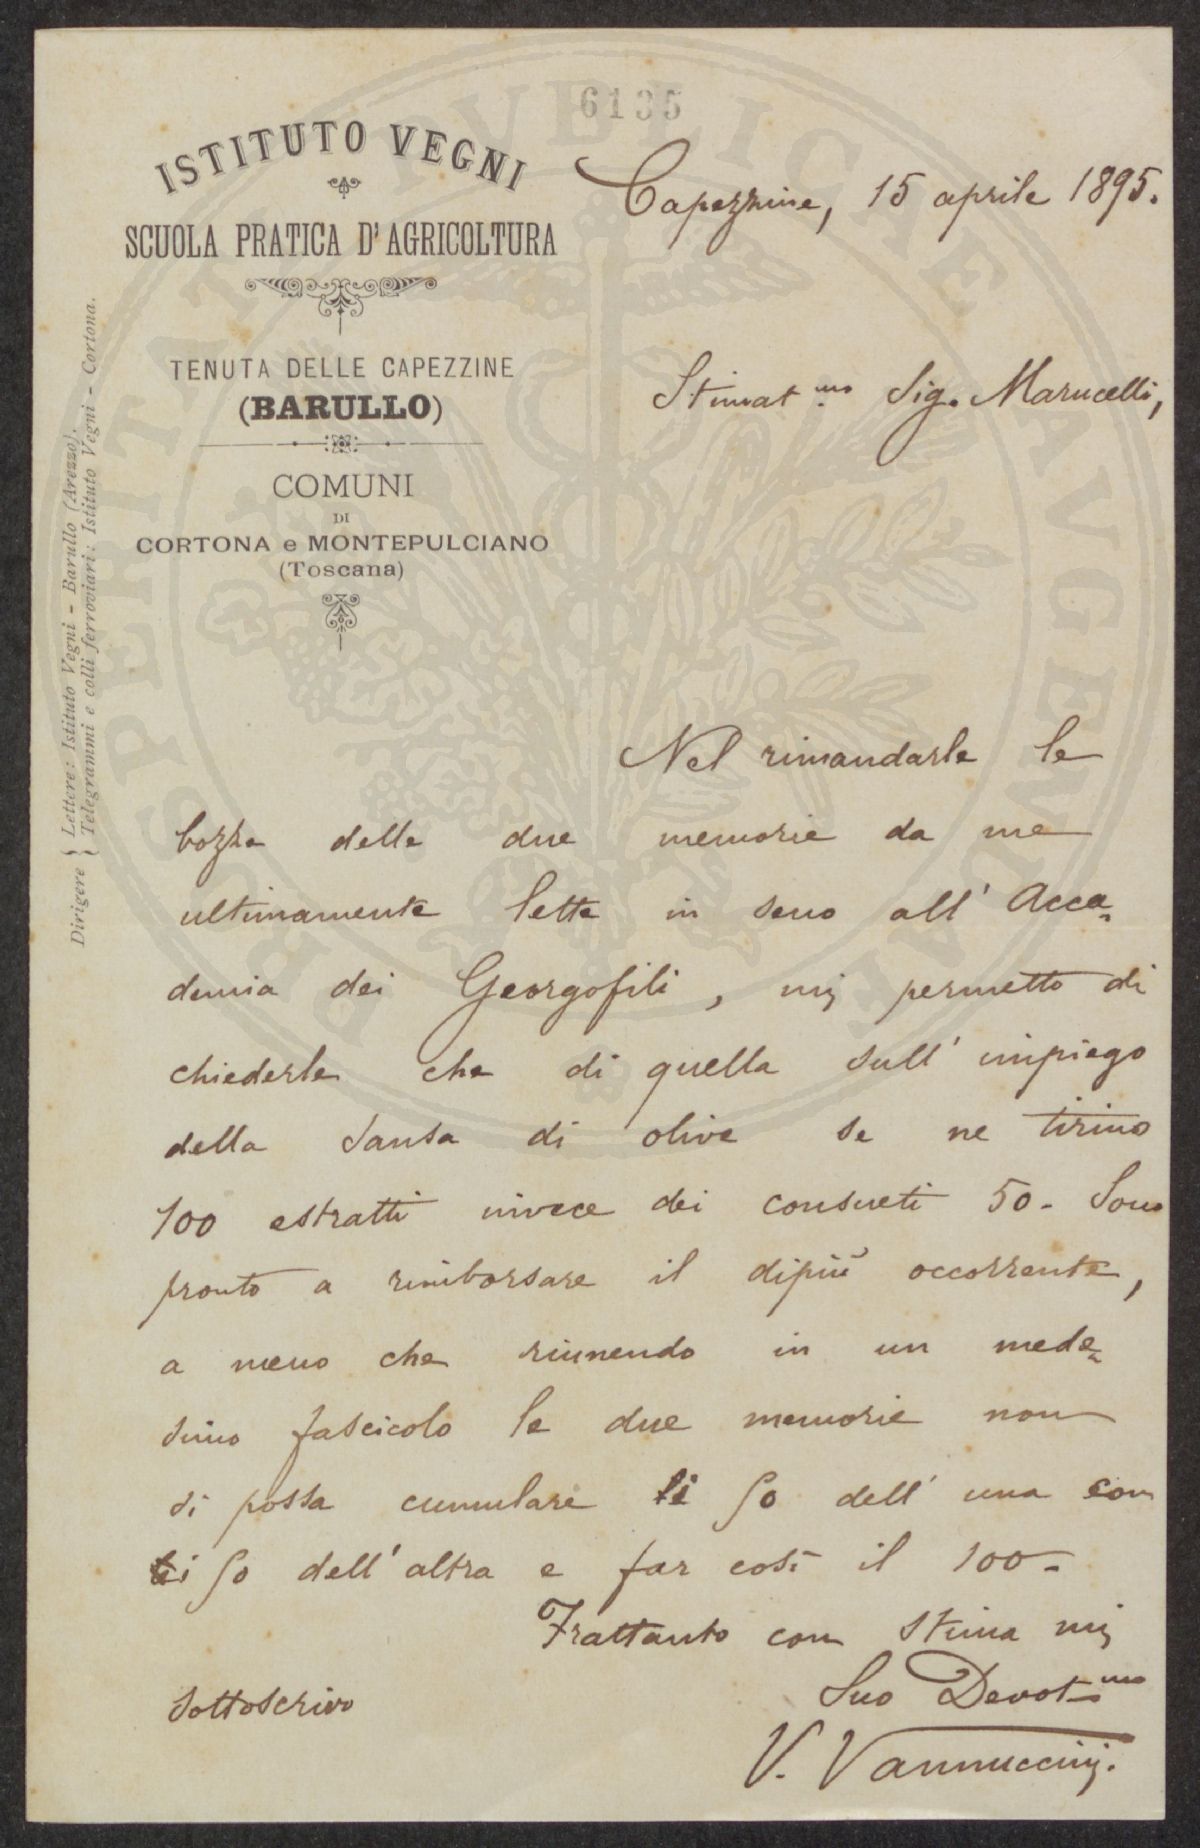 6135
ISTITUTO VEGNI
SCUOLA PRATICA D'AGRICOLTURA
TENUTA DELLE CAPEZZINE
(BARULLO)
COMUNI
DI
CORTONA e MONTEPULCIANO
(Toscana)
Dirigere } Lettere: Istituto Vegni - Barullo (Arezzo).
Telegrammi e colli ferroviari: Istituto Vegni - Cortona.
Capezzine, 15 aprile 1895.
Stimat.mo Sig. Marucelli,
Nel rimandarle le
bozze delle due memorie da me
ultimamente lette in seno all' Acca=
demia dei Georgofili, mi permetto di
chiederle che di quella sull' impiego
della sansa di olive se ne tirino
100 estratti invece dei consueti 50. Sono
pronto a rimborsare il dipiù occorrente,
a meno che riunendo in un mede=
simo fascicolo le due memorie non
si possa cumulare li 50 dell' una con
li 50 dell' altra e far così il 100.
Frattanto con stima mi
sottoscrivo
Suo Devot.mo
V. Vannuccini.